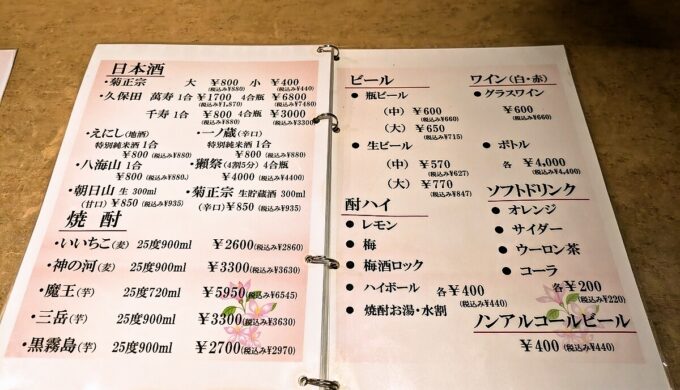 日本酒
・菊正宗 大 ¥800(税込み¥880) 小 ¥400(税込み¥440)
・久保田 萬寿 1合 ¥1700(税込み¥1,870) 4合瓶 ¥6800(税込み¥7480)
千寿 1合 ¥800(税込み¥880) 4合瓶 ¥3000(税込み¥3300)
・えにし(地酒) ・一ノ蔵(辛口)
特別純米酒 1合 特別純米酒 1合
¥800(税込み¥880) ¥800(税込み¥880)
・八海山 1合 ・獺祭(4割5分) 4合瓶
¥800(税込み¥880) ¥4000(税込み¥4400)
・朝日山 生 300ml ・菊正宗 生貯蔵酒 300ml
(甘口)¥850(税込み¥935) (辛口)¥850(税込み¥935)
焼酎
・いいちこ(麦) 25度900ml ¥2600(税込み¥2860)
・神の河(麦) 25度900ml ¥3300(税込み¥3630)
・魔王(芋) 25度720ml ¥5950(税込み¥6545)
・三岳(芋) 25度900ml ¥3300(税込み¥3630)
・黒霧島(芋) 25度900ml ¥2700(税込み¥2970)
ビール
● 瓶ビール
(中) ¥600(税込み¥660)
(大) ¥650(税込み¥715)
● 生ビール
(中) ¥570(税込み¥627)
(大) ¥770(税込み¥847)
酎ハイ
● レモン
● 梅
● 梅酒ロック
● ハイボール 各¥400(税込み¥440)
● 焼酎お湯・水割
ワイン(白・赤)
● グラスワイン
¥600(税込み¥660)
● ボトル
各 ¥4,000(税込み¥4,400)
ソフトドリンク
● オレンジ
● サイダー
● ウーロン茶
● コーラ
各¥200(税込み¥220)
ノンアルコールビール
¥400(税込み¥440)